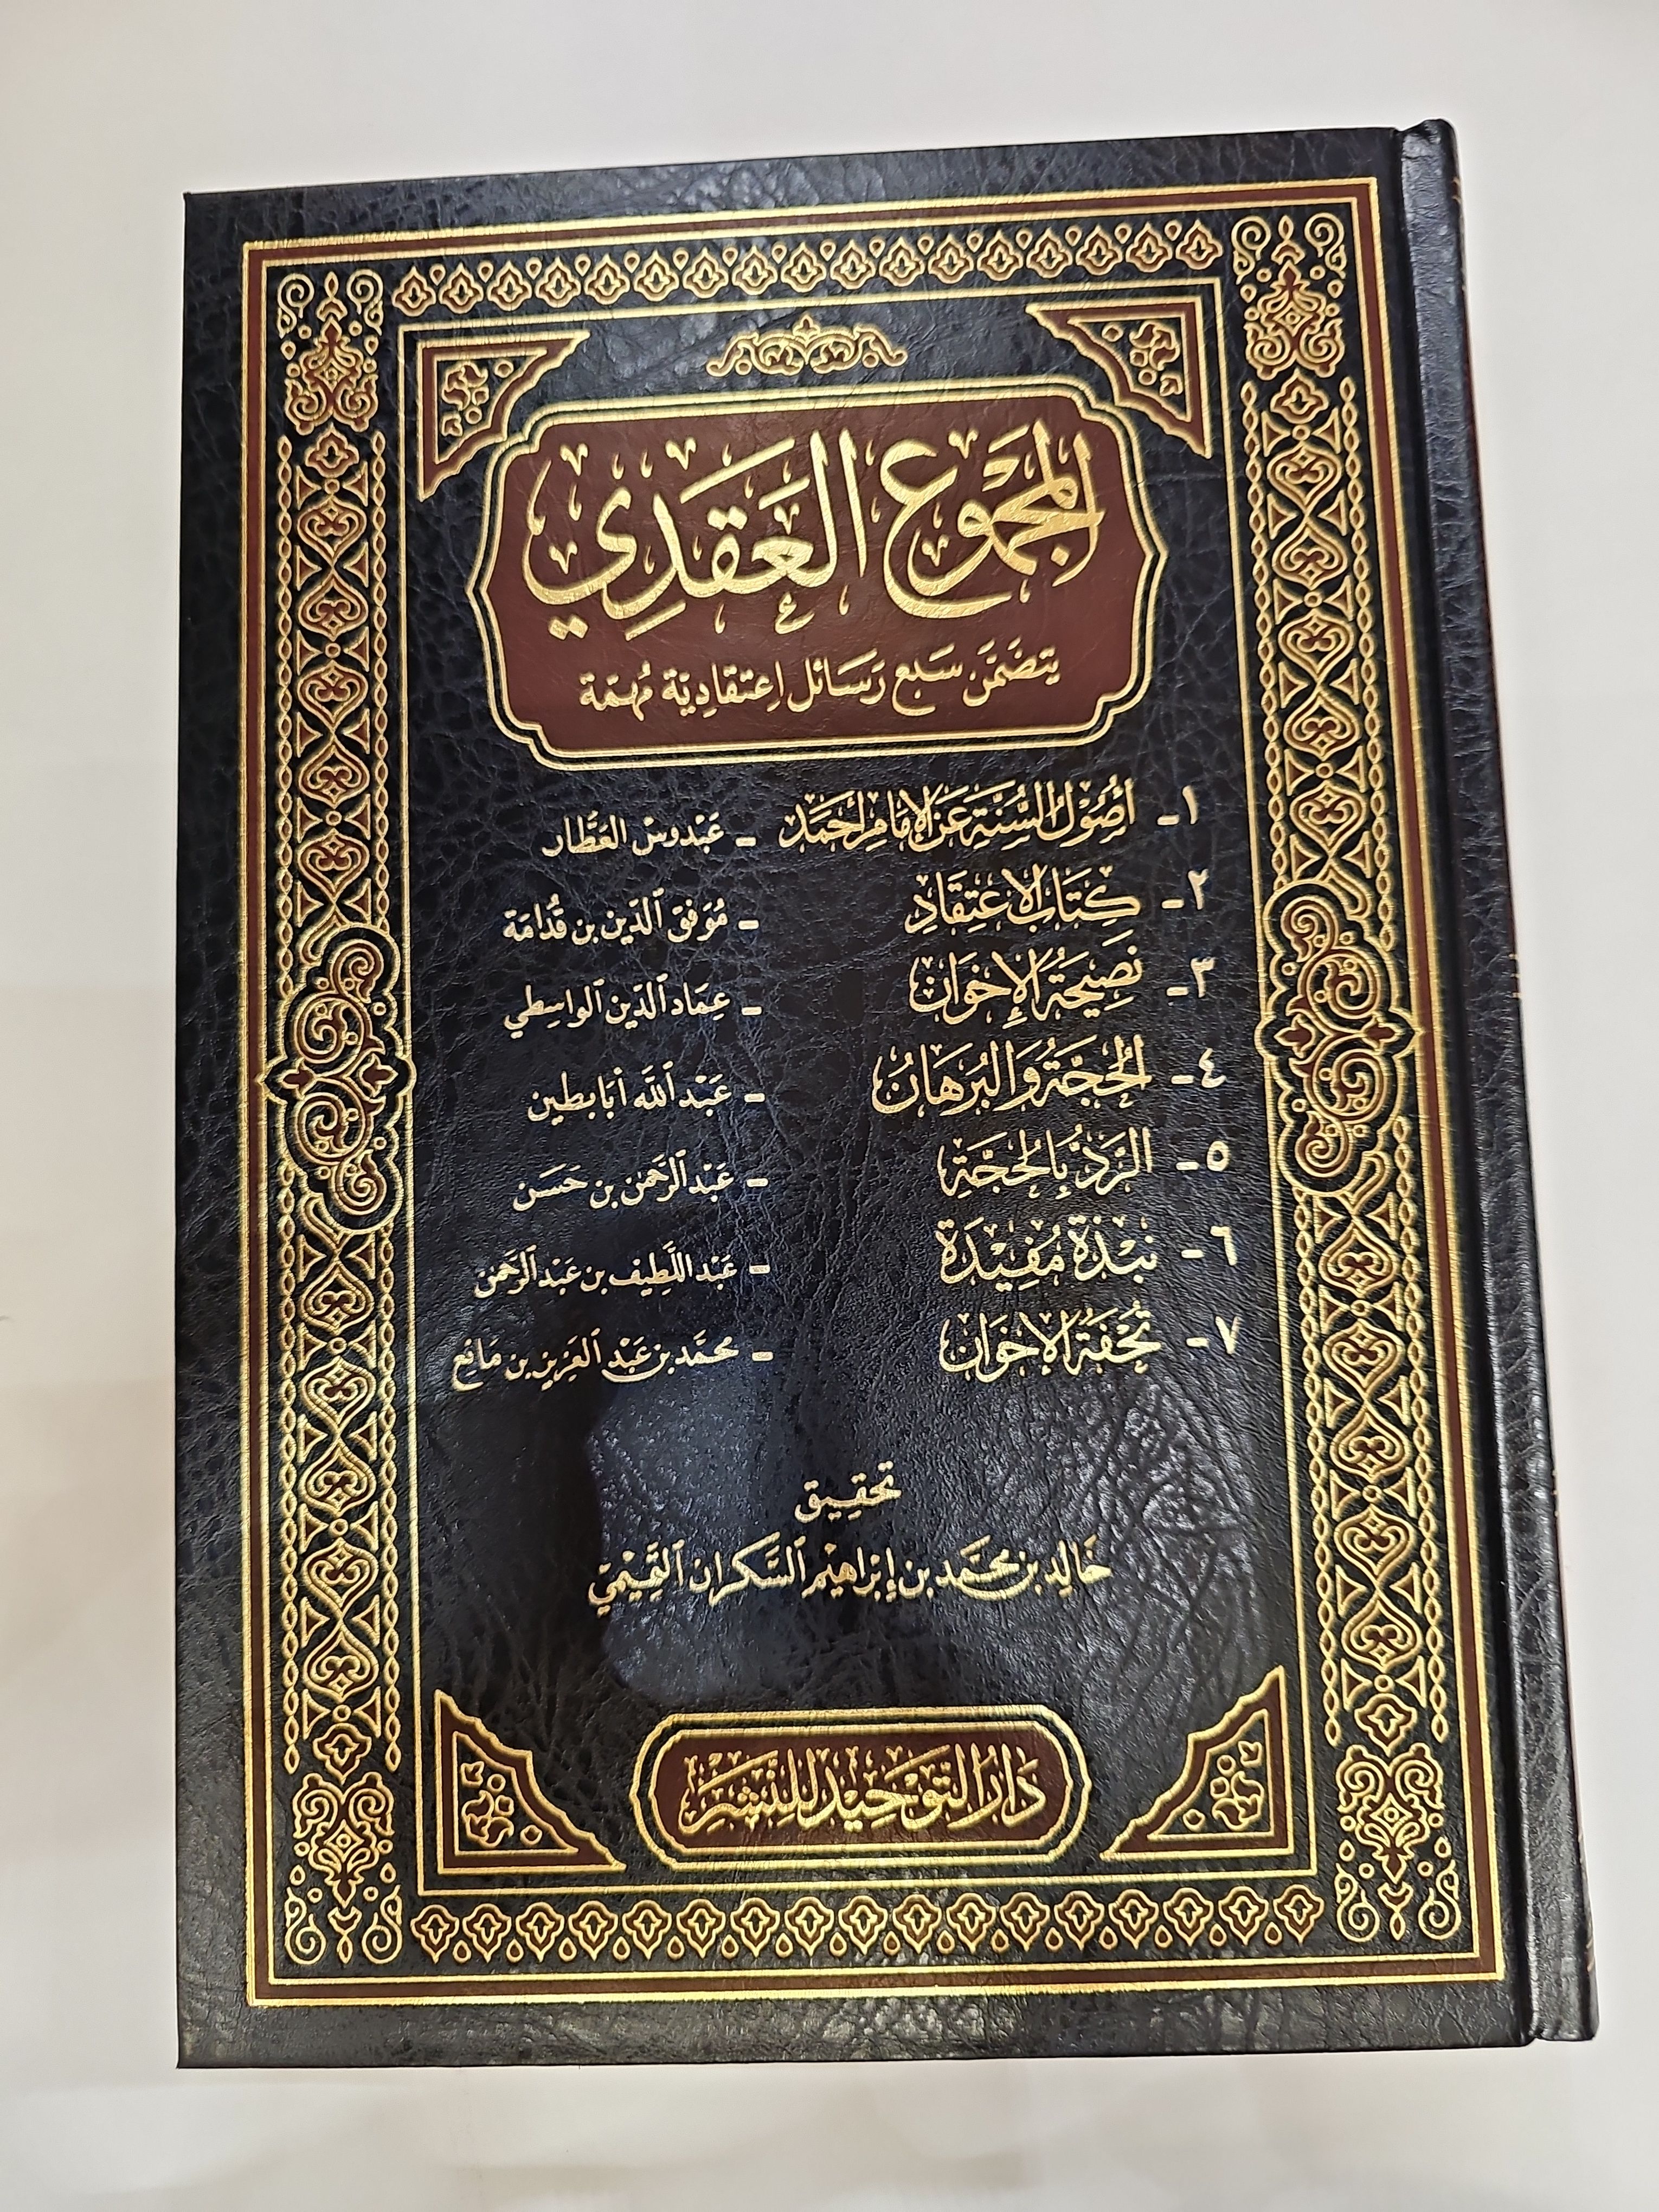 المجموع العَقَدِي
يتضمّن سَبع رَسَائل اعتقاديّة مُهمّة
١- أُصُولُ السُّنَّةِ عَن الإمَامِ أَحْمَد - عَبْدوسْ العَطَّار
٢- كِتَابُ الاعْتِقَادِ - مُوَفق الدّين بن قُدَامَة
٣- نَصِيحَةُ الإخْوَان - عِمَاد الدّين الواسِطي
٤- الحُجَّةُ وَالبُرهَانُ - عَبْد اللّه أبَابطين
٥- الرَّدُّ بِالحُجَّةِ - عَبْد الرَّحمن بن حَسَن
٦- نُبْذَةٌ مُفِيْدَة - عَبْد اللَّطِيف بن عَبْد الرَّحمن
٧- تُحْفَةُ الإخْوَان - محمَّد بن عَبْد العَزيز بن مَانع
تحقيق
خَالِد بن محمَّد بن إبْراهيْم السَّكران التَّمِيْمي
دَارُ التَّوْحِيْدِ للنَّشْرِ